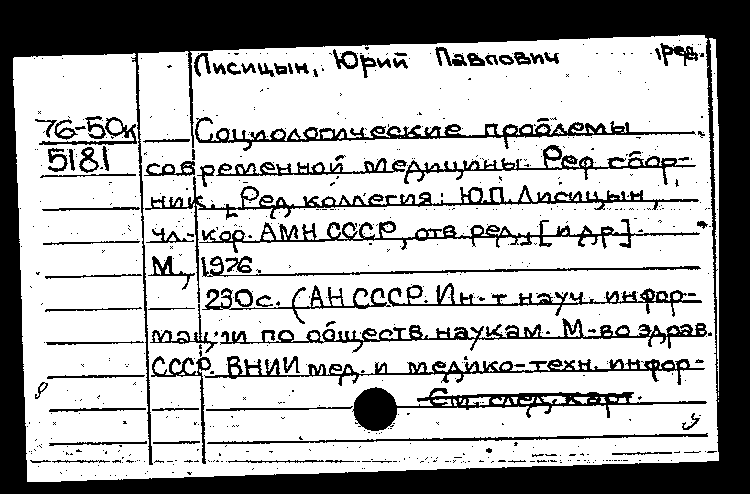 Лисицын, Юрий Павлович, ред.
76-50к Социологические проблемы
5181 современной медицины. Реф. сбор-
ник. [Ред. коллегия: Ю.П. Лисицын,
чл.-кор. АМН СССР, отв. ред., [и др.].
М., 1976.
230с. (АН СССР. Ин-т науч. инфор-
мации по обществ. наукам. М-во здрав.
СССР. ВНИИ мед. и медико-техн. инфор-
См. след. карт.